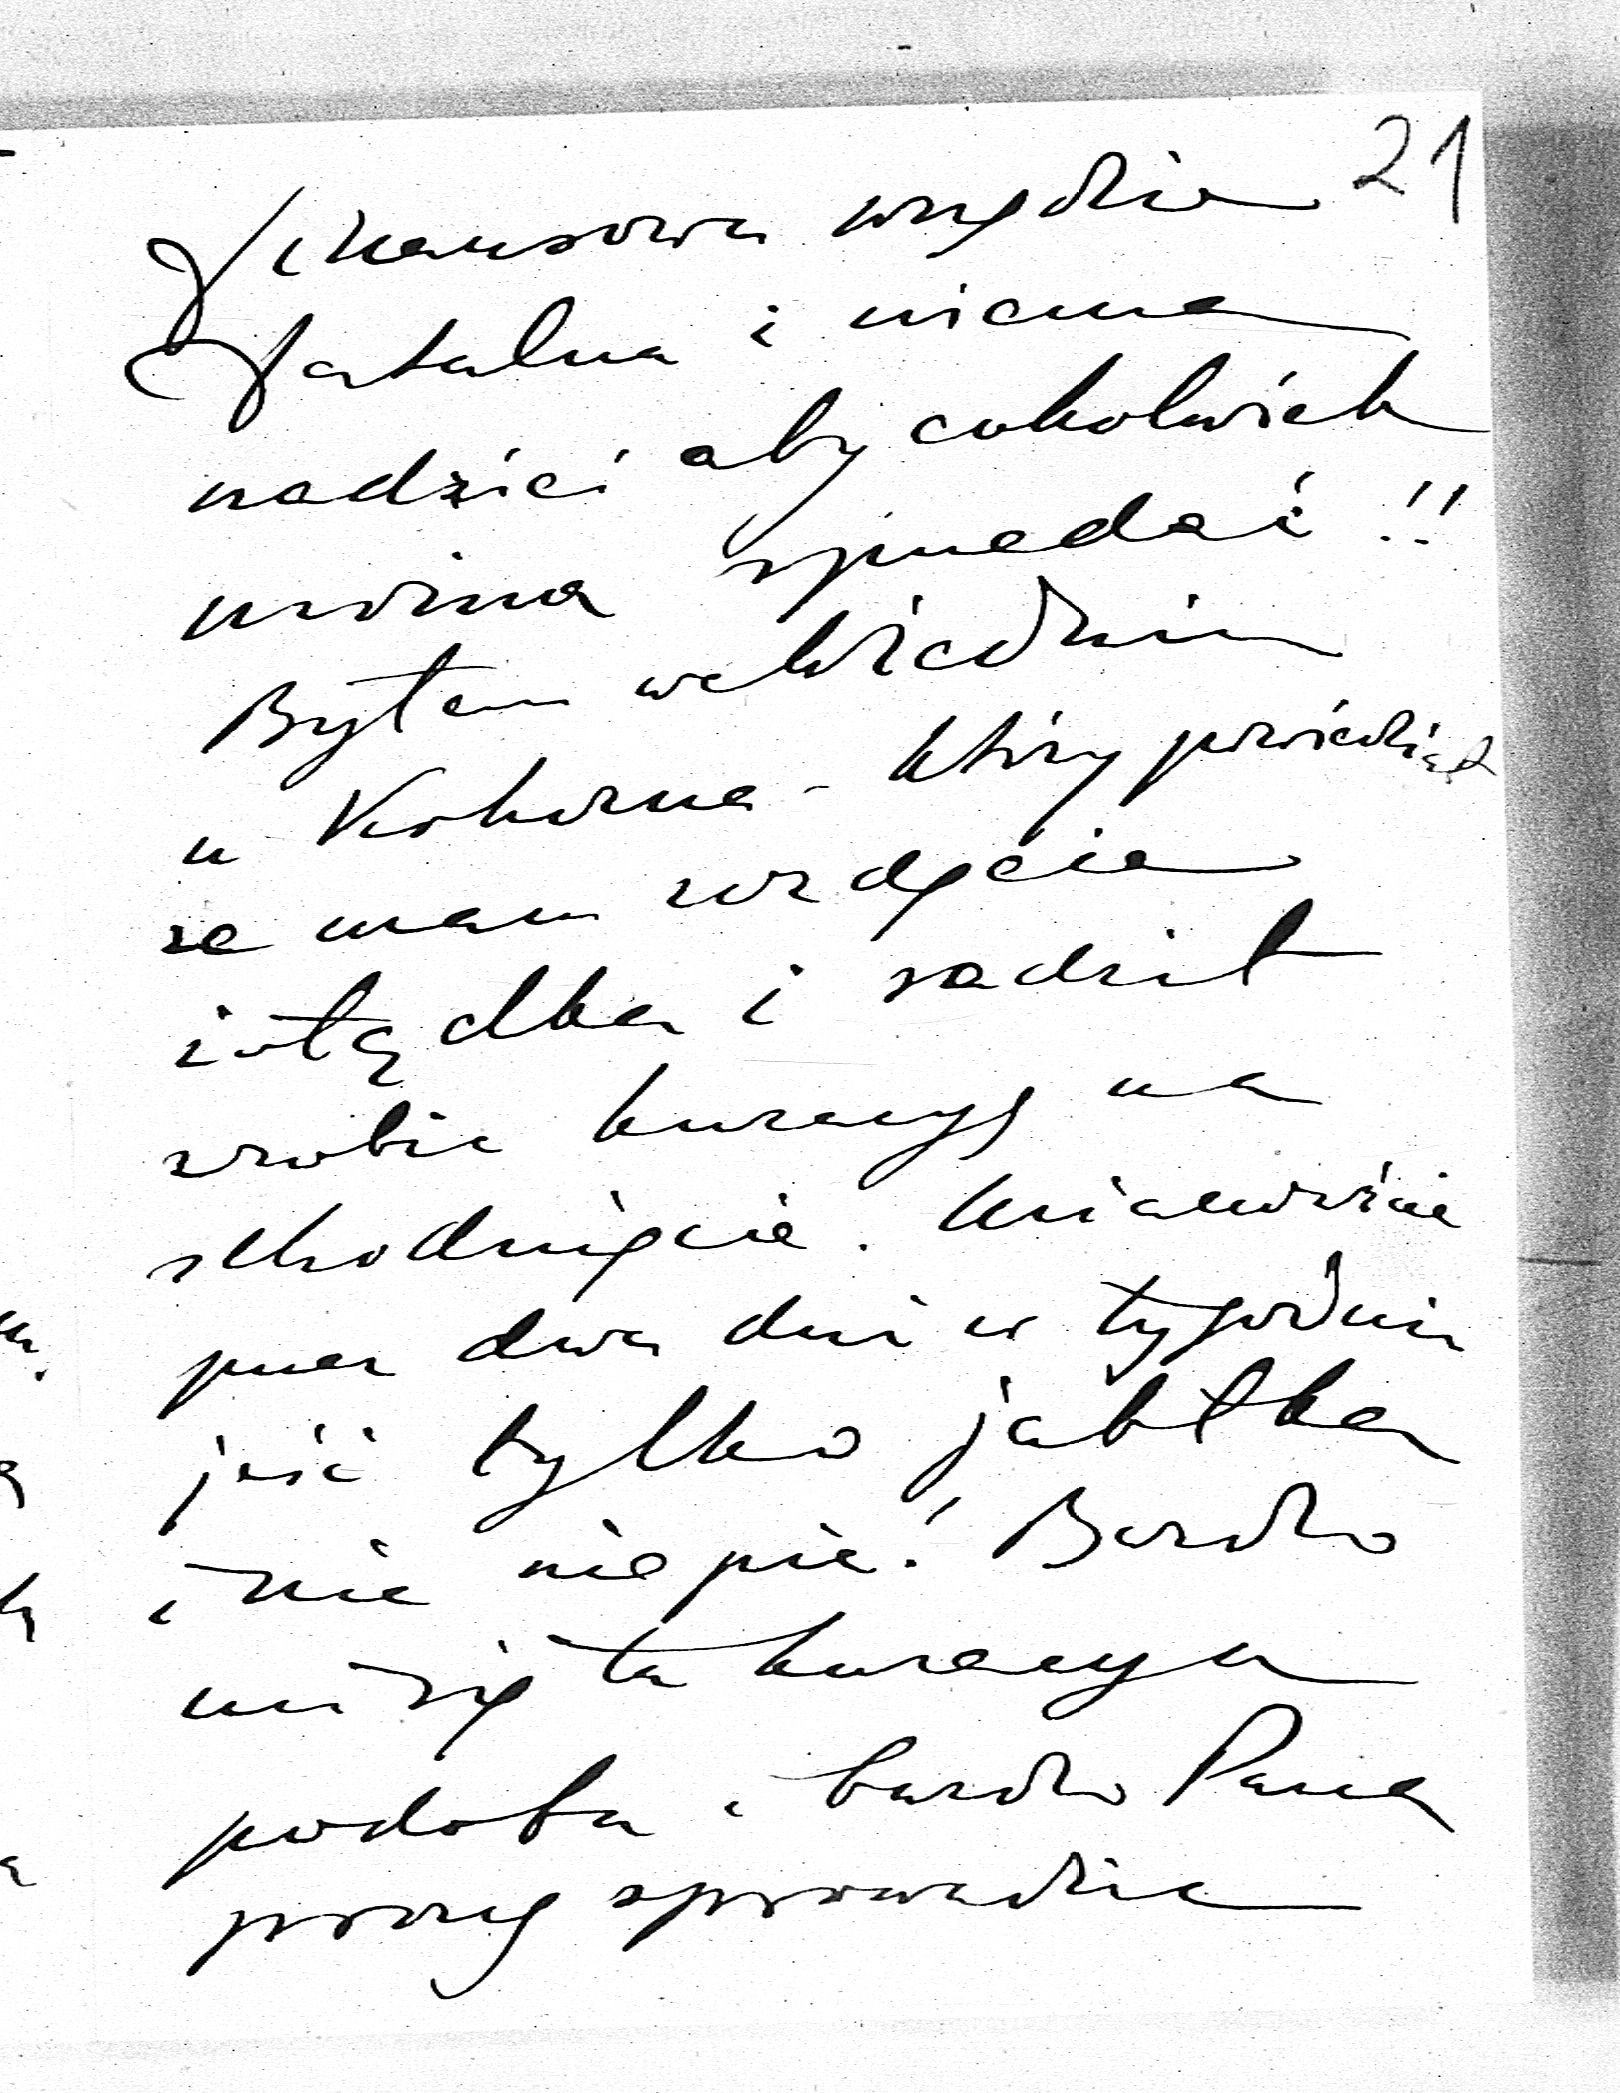 21
finansowa wszędzie
fatalna i niema
nadziei aby cokolwiek
można sprzedać!!
Byłem we Wiedniu
u Kohorna - który powiedział
ze mam rozdęcie
żołądka i radził
zrobic kuracyę na
schodnięcie. Mianowicie
przez dwa dni w tygodniu
jeść tylko jabłka
i nic nie pić! Bardzo
mi się ta kuracya
podoba i bardzo Pana
proszę sprowadzic